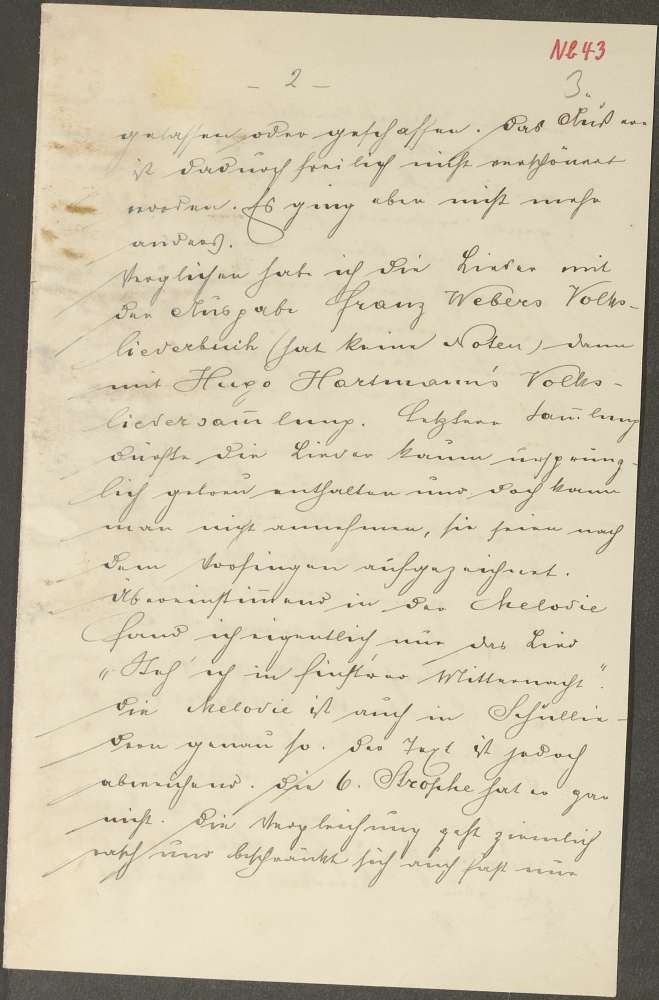 Nb 43
- 2 -
3.
gelassen oder geschaffen. Das Äußere
ist dadurch freilich nicht verschönert
worden. Es ging aber nicht mehr
anders.
Verglichen habe ich die Lieder mit
der Ausgabe Franz Webers Volks-
liederbuch (hat keine Noten) dann
mit Hugo Hartmann's Volks-
liedersam̅lung. Letztere Sam̅lung
dürfte die Lieder kaum ursprüng-
lich getreu enthalten und doch kann
man nicht annehmen, sie seien nach
dem Vorsingen aufgezeichnet.
Übereinstim̅end in der Melodie
fand ich eigentlich nur das Lied
„Steh' ich in finst'rer Mitternacht".
Die Melodie ist auch in Schullie-
dern genau so. Der Text ist jedoch
abweichend. Die 6. Strophe hat er gar
nicht. Die Vergleichung geht ziemlich
rasch und beschränkt sich auch fast nur